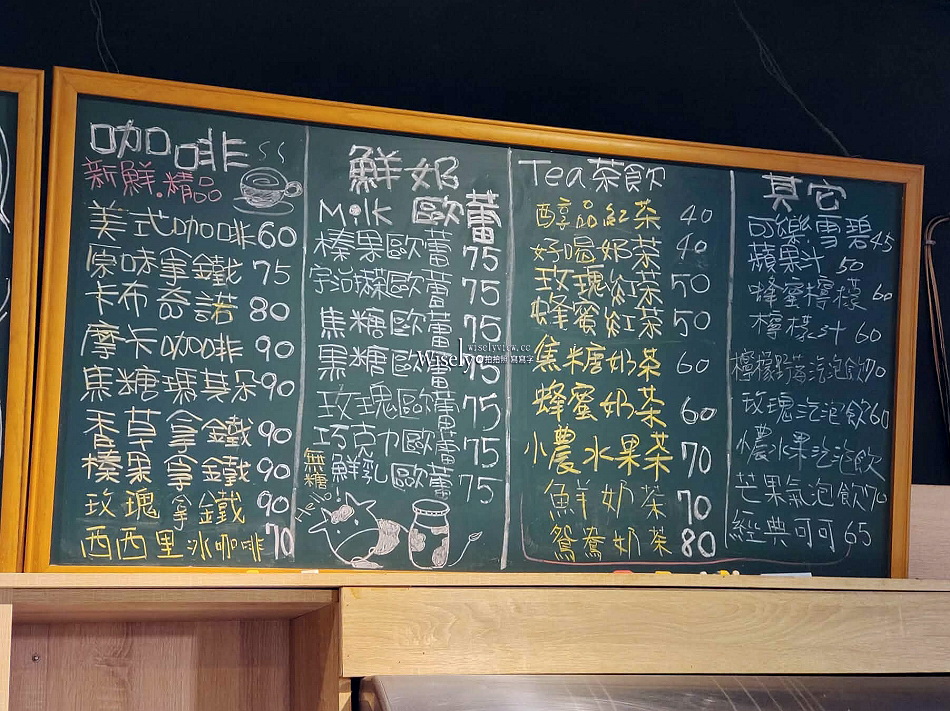 咖啡
新鮮.精品
美式咖啡60
原味拿鐵 75
卡布奇諾 80
摩卡咖啡 90
焦糖瑪其朵90
香草拿鐵 90
榛果拿鐵 90
玫瑰拿鐵 90
西西里冰咖啡70
鮮奶
Milk 歐蕾
榛果歐蕾 75
宇治抹茶歐蕾 75
焦糖歐蕾 75
黑糖歐蕾 75
玫瑰歐蕾 75
巧克力歐蕾 75
無糖 鮮乳歐蕾 75
Hello!
Tea茶飲
醇品紅茶 40
好喝奶茶 40
玫瑰紅茶 50
蜂蜜紅茶 50
焦糖奶茶 60
蜂蜜奶茶 60
小農水果茶 70
鮮奶茶 70
鴛鴦奶茶 80
其它
可樂雪碧45
蘋果汁 50
蜂蜜檸檬 60
檸檬汁 60
檸檬野莓汽泡飲70
玫瑰汽泡飲60
小農水果汽泡飲
芒果氣泡飲70
經典可可 65
Wisely
wiselyview.cc
拍拍照寫寫字